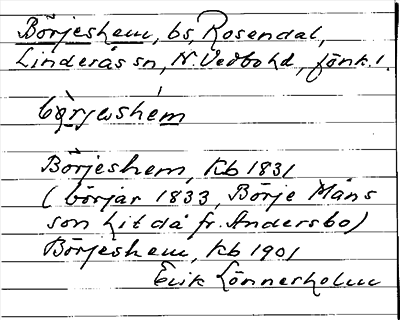 Börjeshem, bs, Rosendal,
Linderås sn, N. Vedbo hd, Jönk. l.
bö̀rjəshém
Börjeshem, Kb 1831
(börjar 1833, Börje Måns
son hit då fr. Andersbo)
Börjeshem, Kb 1901
Erik Lönnerholm